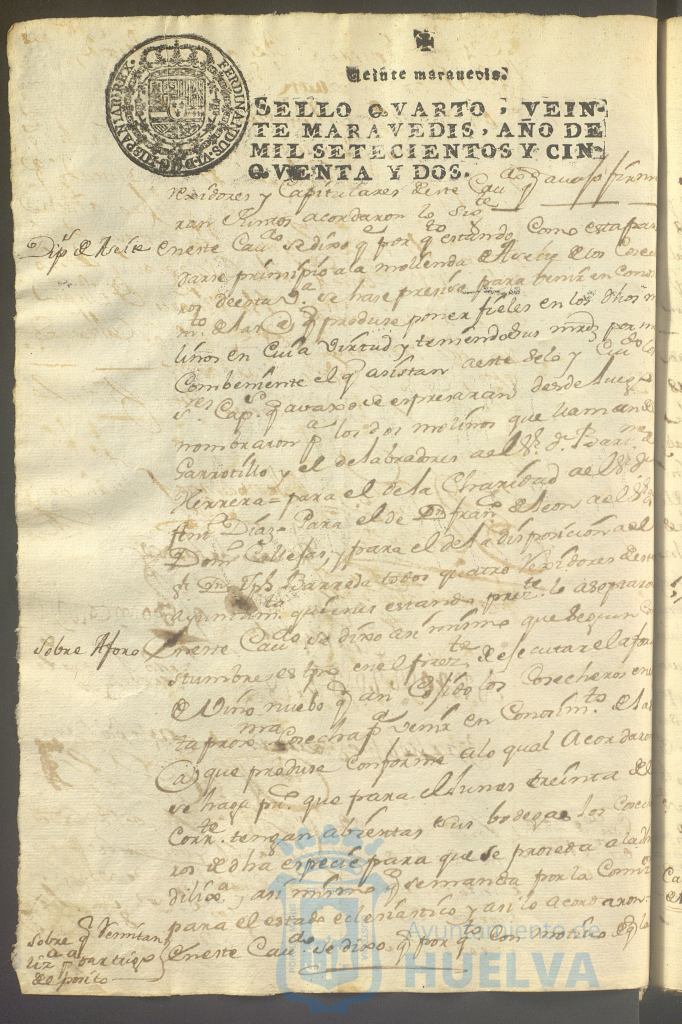 FERDINANDUS VI D G HISPANIAR REX
Veinte maravedis.
SELLO QVARTO, VEIN-
TE MARAVEDIS, AÑO DE
MIL SETECIENTOS Y CIN-
QVENTA Y DOS.
rexidores y Capitulares deste Cavdo q avaxo firma
ran Juntos acordaron lo sigte
Dips de Aseite
En este Cavdo se dixo q por qto estando Como esta para
darse prinsipio a la molienda de Aseite de los Cosec
ros de esta Va se hase presiso para venir en Conosi
mto de las @ q produse poner fieles en los dhos mo
linos en Cuia virtud y teniendo sus mrds por
Combeniente el q asistan a este selo y Cuido los
Sres Caps q avaxo se expresaran desde luego
nombraron pa los dos molinos que llaman de
Garrotillo y el de labradores a el Sr Dn Bartme
Herrera = para el de la Charidad a el Sr Dn
Antt Diaz = Para el de Dn Franco de Leon a el Sr Dn
Domo Callejas, y para el de la disposición a el
Sr Dn Jph Barreda todos quatro rexidores deste
Ayuntamto quienes estando preztes lo aseptaron
Sobre Aforo
En este Cavdo se dixo asi mismo que segun
stumbre es tpo en el prezte de se cutar el afor
de Vino nuebo q an Cojido los Cosecheros en es
ta proxma Cosecha pa venir en Conosimto de las
@ que produse Conforme a lo qual Acordaron
se haga puco que para el Lunes treinta del
Corrte tengan abiertas sus bodegas los Cosech
ros de dha espesie para que se proseda a la dha
dilixa, asi mismo q se manda por la Comun
para el estado eclesiastico y asi lo acordaron
Sobre q Remitan
de el posito
En este Cavdo se dixo q por qto Con motivo de
Ayuntamiento de
HUELVA